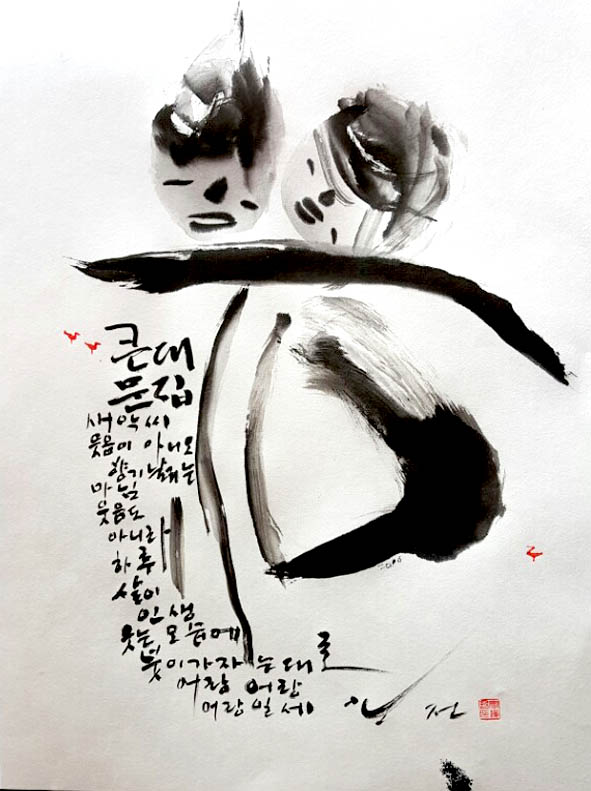 큰대
문집
새악씨
웃음이 아니오
향기날리는
마님
웃음도
아니라
하루
살이
인생
웃는 모습에
붓이가자는대로
어랑 어랑
어랑일세